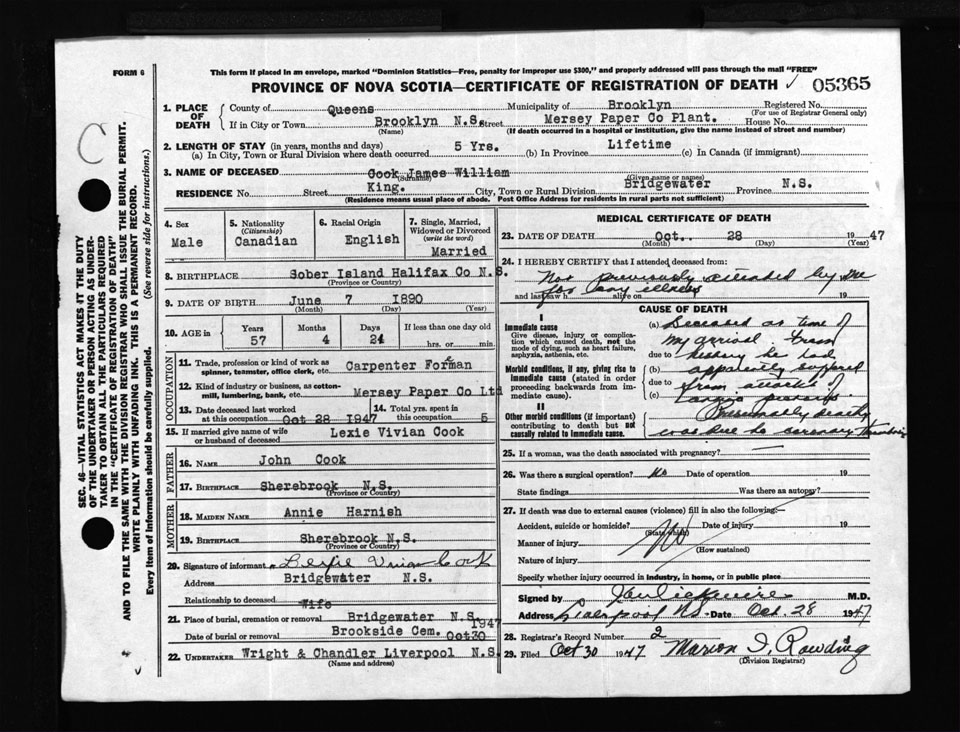 FORM 6
This form if placed in an envelope, marked "Dominion Statistics—Free, penalty for improper use $300," and properly addressed will pass through the mail "FREE"
PROVINCE OF NOVA SCOTIA—CERTIFICATE OF REGISTRATION OF DEATH ✓ 05365
SEC. 46—VITAL STATISTICS ACT MAKES IT THE DUTY
OF THE UNDERTAKER OR PERSON ACTING AS UNDER-
TAKER TO OBTAIN ALL THE PARTICULARS REQUIRED
IN THE "CERTIFICATE OF REGISTRATION OF DEATH"
AND TO FILE THE SAME WITH THE DIVISION REGISTRAR WHO SHALL ISSUE THE BURIAL PERMIT.
WRITE PLAINLY WITH UNFADING INK. THIS IS A PERMANENT RECORD.
Every item of Information should be carefully supplied. (See reverse side for instructions.)
1. PLACE OF DEATH County of Queens Municipality of Brooklyn Registered No.
(For use of Registrar General only)
If in City or Town Brooklyn N.S. Street Mersey Paper Co Plant. House No.
(Name) (If death occurred in a hospital or institution, give the name instead of street and number)
2. LENGTH OF STAY (in years, months and days)
(a) In City, Town or Rural Division where death occurred 5 Yrs. (b) In Province Lifetime (c) In Canada (if immigrant)
3. NAME OF DECEASED Cook James William
(Surname) (Given name or names)
RESIDENCE No. Street King. City, Town or Rural Division Bridgewater Province N.S.
(Residence means usual place of abode. Post Office Address for residents in rural parts not sufficient)
4. Sex Male
5. Nationality (Citizenship) Canadian
6. Racial Origin English
7. Single, Married, Widowed or Divorced (write the word) Married
8. BIRTHPLACE Sober Island Halifax Co N.S.
(Province or Country)
9. DATE OF BIRTH June 7 1890
(Month) (Day) (Year)
10. AGE in Years 57 Months 4 Days 21 If less than one day old hrs. or min.
OCCUPATION
11. Trade, profession or kind of work as spinner, teamster, office clerk, etc. Carpenter Forman
12. Kind of industry or business, as cotton-mill, lumbering, bank, etc. Mersey Paper Co Ltd
13. Date deceased last worked at this occupation Oct 28 1947
14. Total yrs. spent in this occupation 5
15. If married give name of wife or husband of deceased Lexie Vivian Cook
FATHER
16. NAME John Cook
17. BIRTHPLACE Sherebrook N.S.
(Province or Country)
MOTHER
18. MAIDEN NAME Annie Harnish
19. BIRTHPLACE Sherebrook N.S.
(Province or Country)
20. Signature of informant Vivian Cook
Address Bridgewater N.S.
Relationship to deceased Wife
21. Place of burial, cremation or removal Bridgewater N.S.
Date of burial or removal Brookside Cem. Oct 30 1947
22. UNDERTAKER Wright & Chandler Liverpool N.S.
(Name and address)
MEDICAL CERTIFICATE OF DEATH
23. DATE OF DEATH Oct.. 28 1947
(Month) (Day) (Year)
24. I HEREBY CERTIFY that I attended deceased from
Not previously attended by me
for any illness
and last saw h alive on 19
CAUSE OF DEATH
I
Immediate cause
Give disease, injury or complication which caused death, not the mode of dying, such as heart failure, asphyxia, asthenia, etc.
Morbid conditions, if any, giving rise to immediate cause (stated in order proceeding backwards from immediate).
II
Other morbid conditions (if important) contributing to death but not causally related to immediate cause.
(a) Deceased at time of
my arrival. From
due to history he had
(b) apparently suffered
due to from attacks of
(c) angina pectoris.
Presumably death
was due to coronary thrombosis
25. If a woman, was the death associated with pregnancy?
26. Was there a surgical operation? No Date of operation 19
State findings Was there an autopsy?
27. If death was due to external causes (violence) fill in also the following:
Accident, suicide or homicide? (State which) Date of injury 19
Manner of injury
(How sustained)
Nature of injury
Specify whether injury occurred in industry, in home, or in public place
Signed by M.D.
Address Liverpool N.S. Date Oct. 28 1947
28. Registrar's Record Number 2
29. Filed Oct 30 1947 Marion I. Rowding
(Division Registrar)